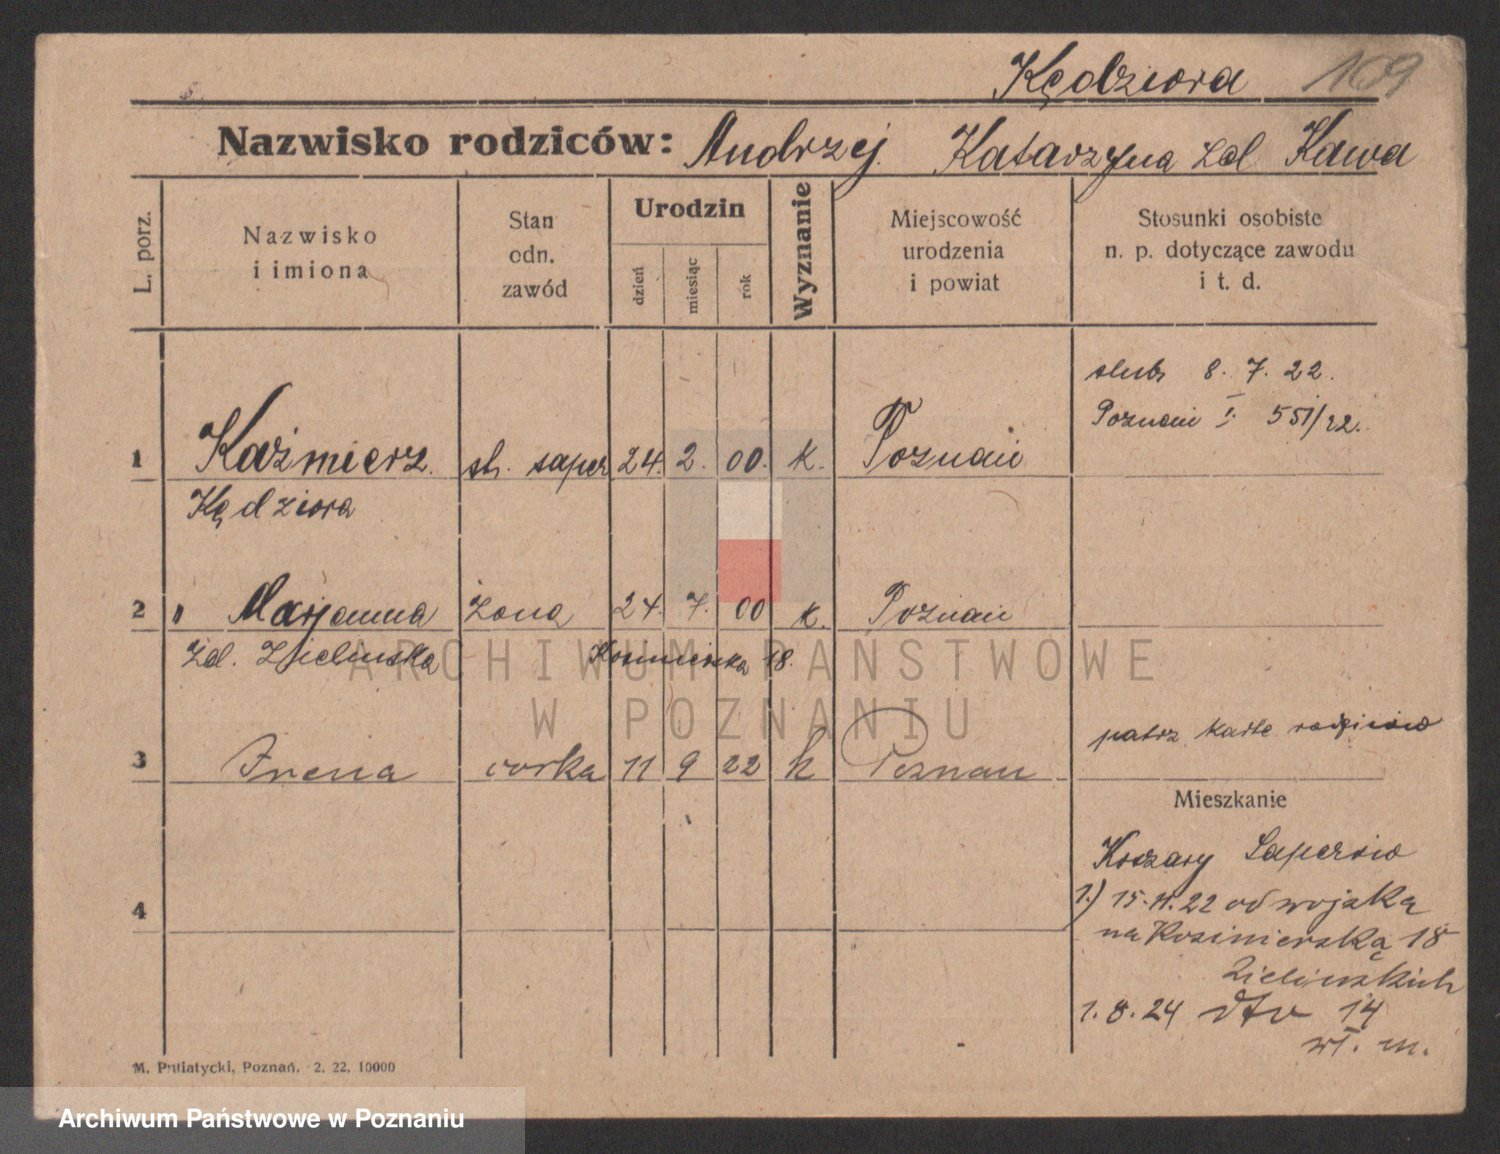 Kędziora 109
Nazwisko rodziców: Andrzej. Katarzyna zd Kawa
L. porz.
Nazwisko
i imiona
Stan
odn.
zawód
Urodzin
dzień
miesiąc
rok
Wyznanie
Miejscowość
urodzenia
i powiat
Stosunki osobiste
n. p. dotyczące zawodu
i t. d.
ślub 8. 7. 22.
Poznań I. 551/22.
1 Kaźmierz. st. saper 24. 2. 00. k. Poznań
Kędziora
2 " Marjanna żona 24. 7. 00 k. Poznań
zd. Zielinska Kosinierska 18.
patrz kartę rodziców
3 Irena corka 11 9 22 k Poznan
Mieszkanie
Koszary Saperów
1.) 15.11.22 od wojska
na Kosinierską 18
Zielinskich
1. 8. 24 dto 14
wł. m.
4
M. Putiatycki, Poznań. 2. 22. 10000
ARCHIWUM PAŃSTWOWE
W POZNANIU
Archiwum Państwowe w Poznaniu